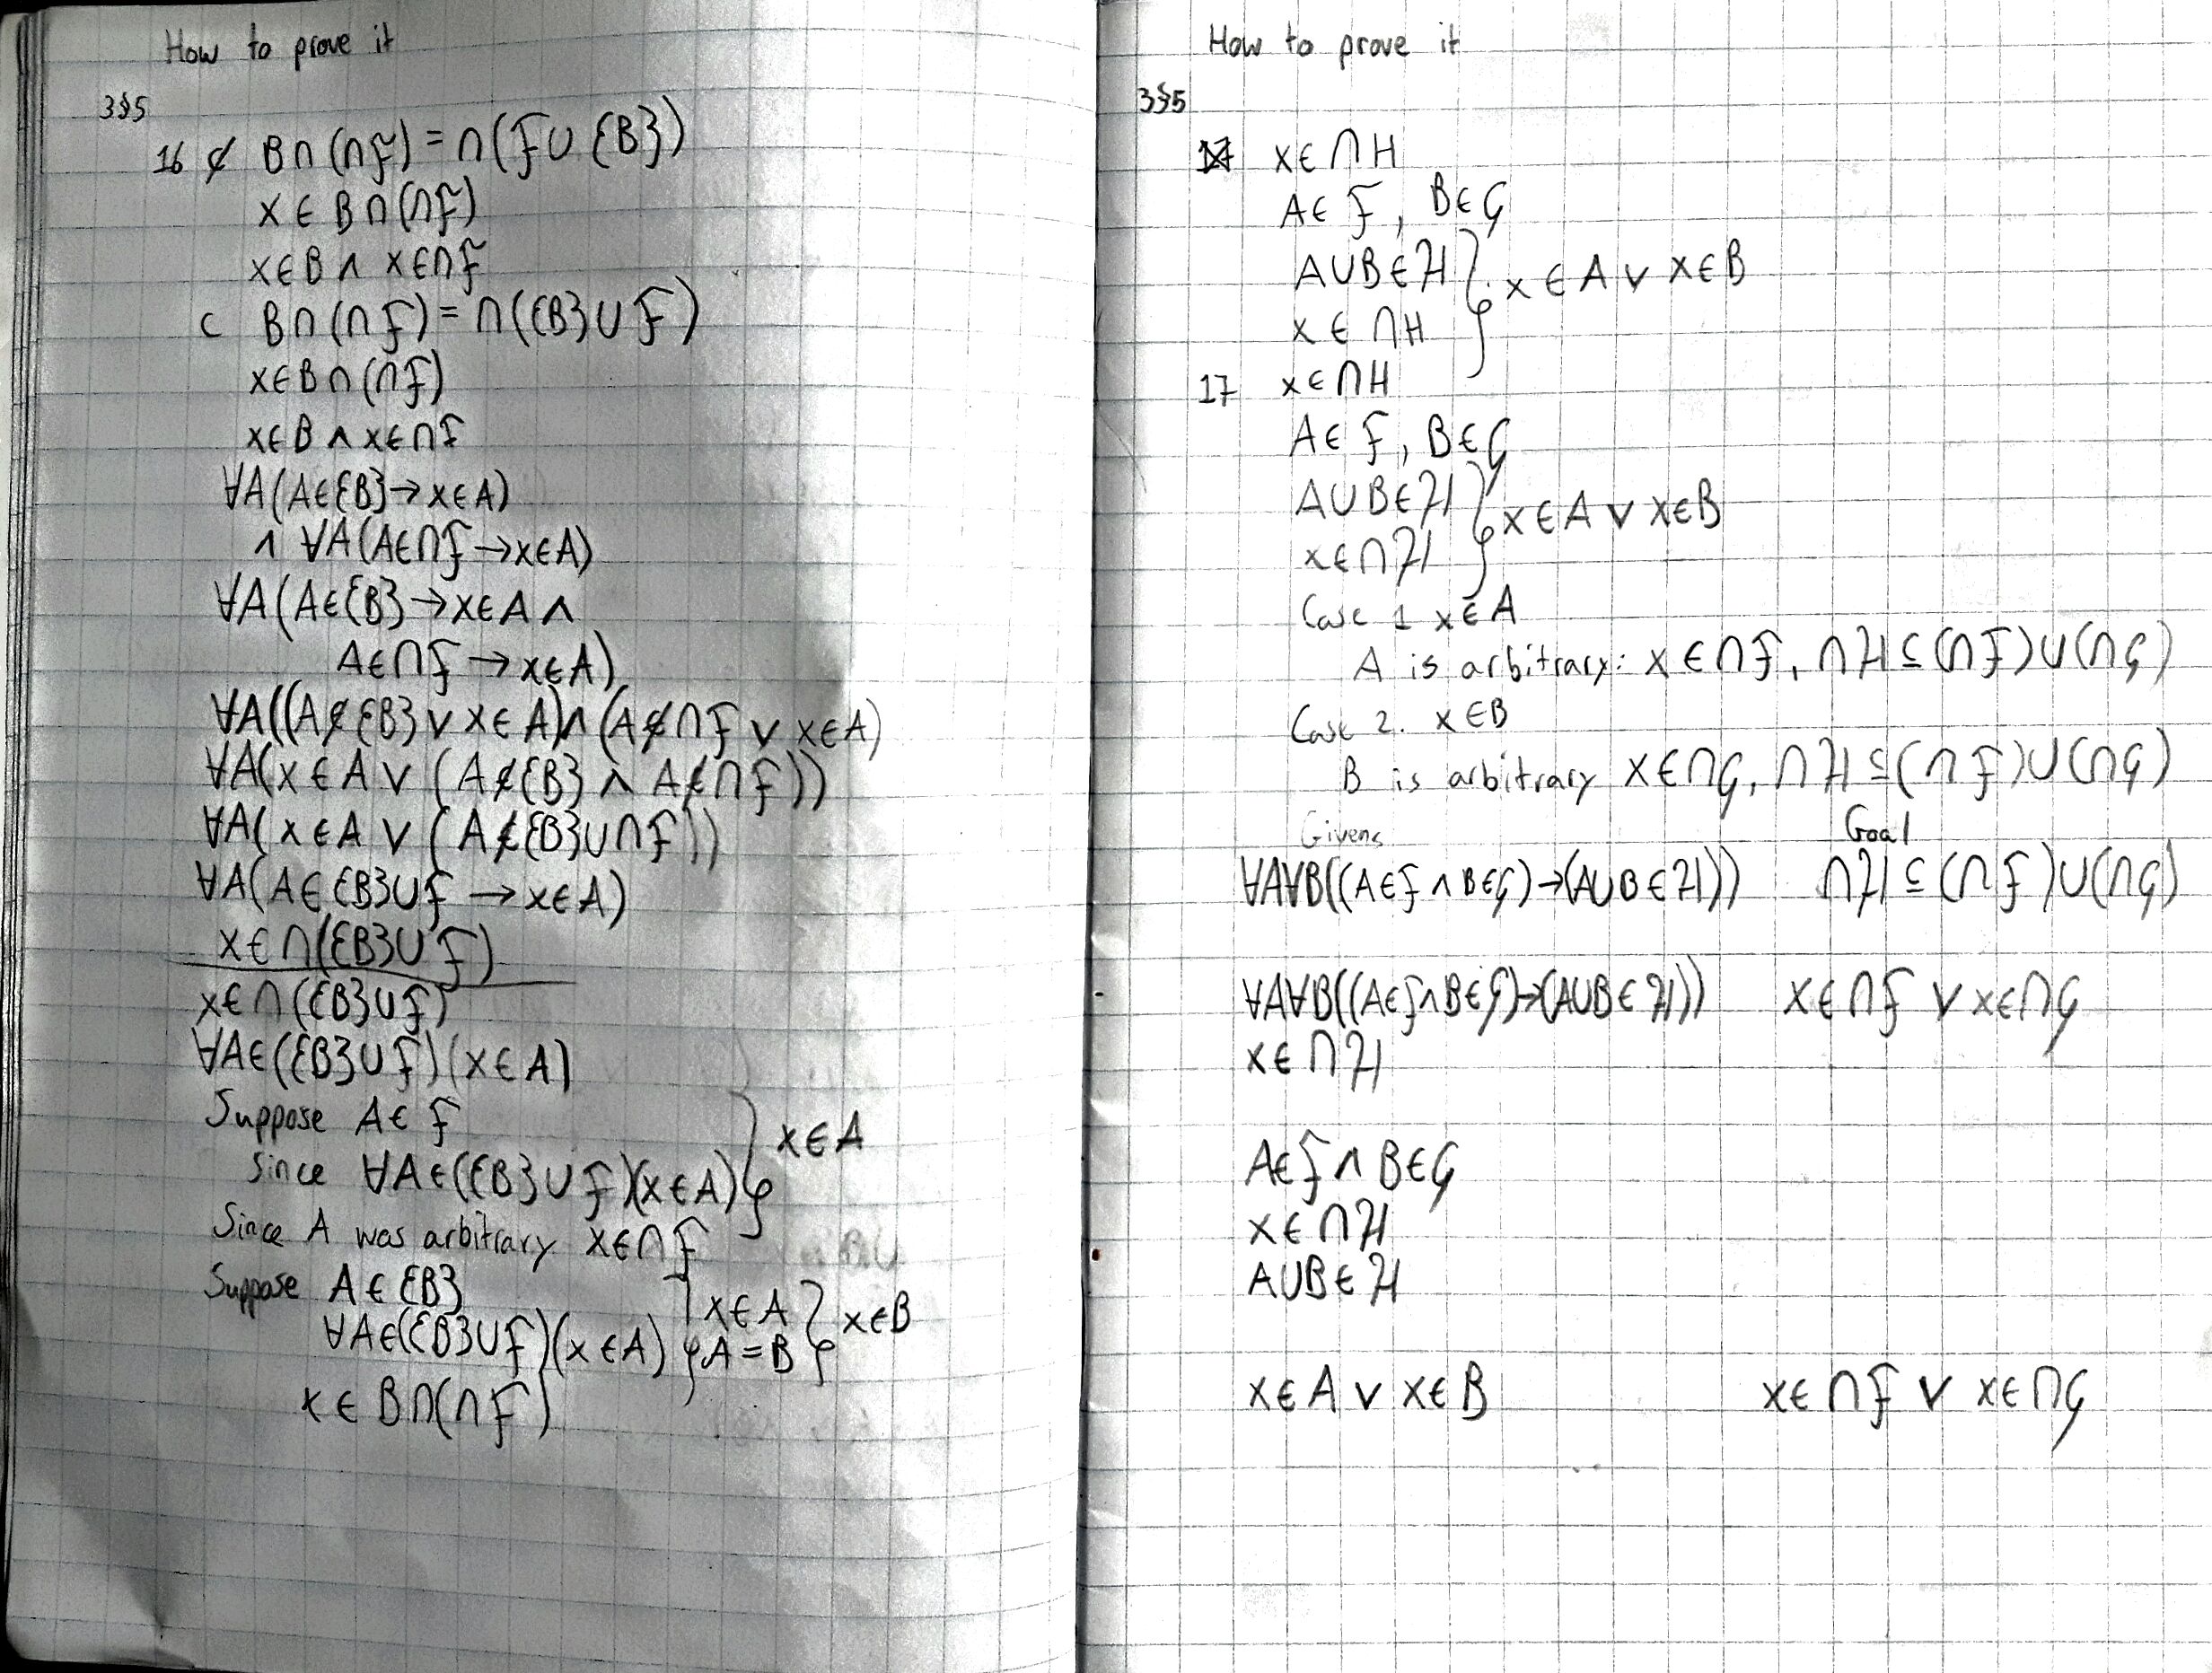 How to prove it
3§5
16 ¢ B∩(∩ℱ) = ∩(ℱ∪{B})
x∈B∩(∩ℱ)
x∈B ∧ x∈∩ℱ
c B∩(∩ℱ) = ∩({B}∪ℱ)
x∈B∩(∩ℱ)
x∈B ∧ x∈∩ℱ
∀A(A∈{B}→x∈A)
∧ ∀A(A∈∩ℱ→x∈A)
∀A(A∈{B}→x∈A ∧
A∈∩ℱ→x∈A)
∀A((A∉{B} ∨ x∈A)∧(A∉∩ℱ ∨ x∈A)
∀A(x∈A ∨ (A∉{B} ∧ A∉∩ℱ))
∀A(x∈A ∨ (A∉{B}∪∩ℱ))
∀A(A∈{B}∪ℱ → x∈A)
x∈∩({B}∪ℱ)
x∈∩({B}∪ℱ)
∀A∈({B}∪ℱ)(x∈A)
Suppose A∈ℱ
Since ∀A∈({B}∪ℱ)(x∈A) } x∈A
Since A was arbitrary x∈∩ℱ
Suppose A∈{B}
∀A∈({B}∪ℱ)(x∈A) } x∈A A=B } x∈B
x∈B∩(∩ℱ)
How to prove it
3§5
17 x∈∩H
A∈ℱ, B∈𝒢
A∪B∈ℋ
x∈∩H } x∈A ∨ x∈B
17 x∈∩H
A∈ℱ, B∈𝒢
A∪B∈ℋ
x∈∩ℋ } x∈A ∨ x∈B
Case 1 x∈A
A is arbitrary: x∈∩ℱ, ∩ℋ⊆(∩ℱ)∪(∩𝒢)
Case 2. x∈B
B is arbitrary x∈∩𝒢, ∩ℋ⊆(∩ℱ)∪(∩𝒢)
Givens Goal
∀A∀B((A∈ℱ∧B∈𝒢)→(A∪B∈ℋ)) ∩ℋ⊆(∩ℱ)∪(∩𝒢)
∀A∀B((A∈ℱ∧B∈𝒢)→(A∪B∈ℋ)) x∈∩ℱ ∨ x∈∩𝒢
x∈∩ℋ
A∈ℱ∧B∈𝒢
x∈∩ℋ
A∪B∈ℋ
x∈A ∨ x∈B x∈∩ℱ ∨ x∈∩𝒢